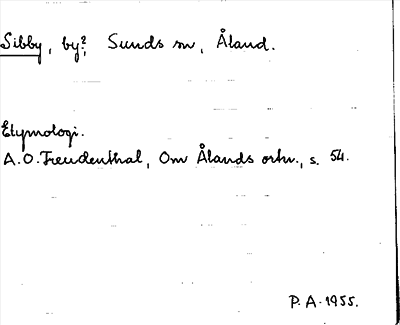 Sibby, by?, Sunds sn, Åland.
Etymologi.
A.O. Freudenthal, Om Ålands ortn., s. 54.
P.A. 1955.